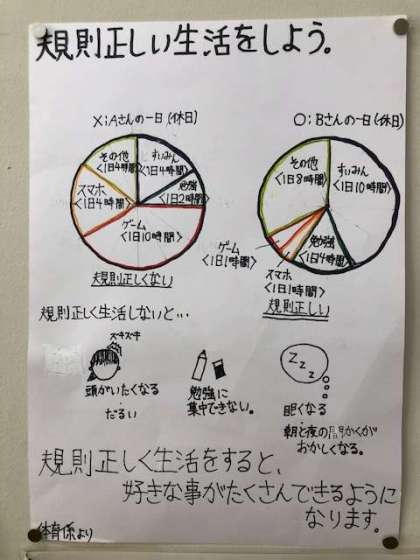 規則正しい生活をしよう。
X:Aさんの一日(休日)
O:Bさんの一日(休日)
その他
<1日4時間>
すいみん
<1日4時間>
勉強
<1日2時間>
スマホ
<1日4時間>
ゲーム
<1日10時間>
規則正しくない
その他
<1日8時間>
すいみん
<1日10時間>
勉強
<1日4時間>
ゲーム
<1日1時間>
スマホ
<1日1時間>
規則正しい
規則正しく生活しないと…
ズキズキ
頭がいたくなる
だるい
勉強に
集中できない。
ZZZ
眠くなる
朝と夜の間かくが
おかしくなる。
規則正しく生活をすると、
好きな事がたくさんできるように
なります。
体育係より